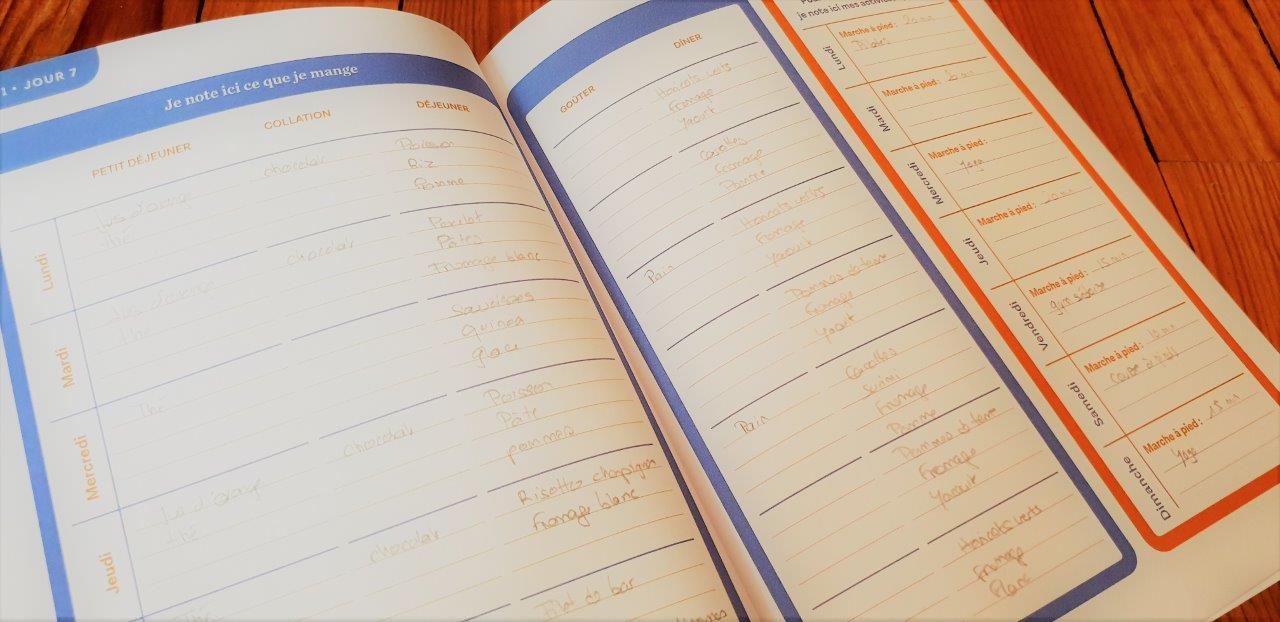 1 • JOUR 7
Je note ici ce que je mange
PETIT DÉJEUNER
COLLATION
DÉJEUNER
Lundi
Jus d'orange
thé
chocolat
Poisson
Riz
Pomme
Mardi
Jus d'orange
thé
chocolat
Poulet
Pâtes
Fromage blanc
Mercredi
thé
Saucisses
quinoa
glace
Jeudi
Jus d'orange
thé
chocolat
Poisson
Pâte
pommes
thé
chocolat
Risotto champignon
Fromage blanc
Filet de bar
GOÛTER
DÎNER
Haricots verts
Fromage
Yaourt
Carottes
Fromage
Pomme
Pain
Haricots verts
Fromage
Yaourt
Pommes de terre
Fromage
Yaourt
Pain
Carottes
Surimi
Fromage
Pomme
Pommes de terre
Fromage
Yaourt
Haricots verts
Fromage
je note ici mes activités
Lundi
Marche à pied : 20 min
Mardi
Marche à pied :
Mercredi
Marche à pied :
Yoga
Jeudi
Marche à pied : 20 min
Vendredi
Marche à pied : 15 min
Samedi
Marche à pied : 10 min
course à pied
Dimanche
Marche à pied : 15 min
Yoga